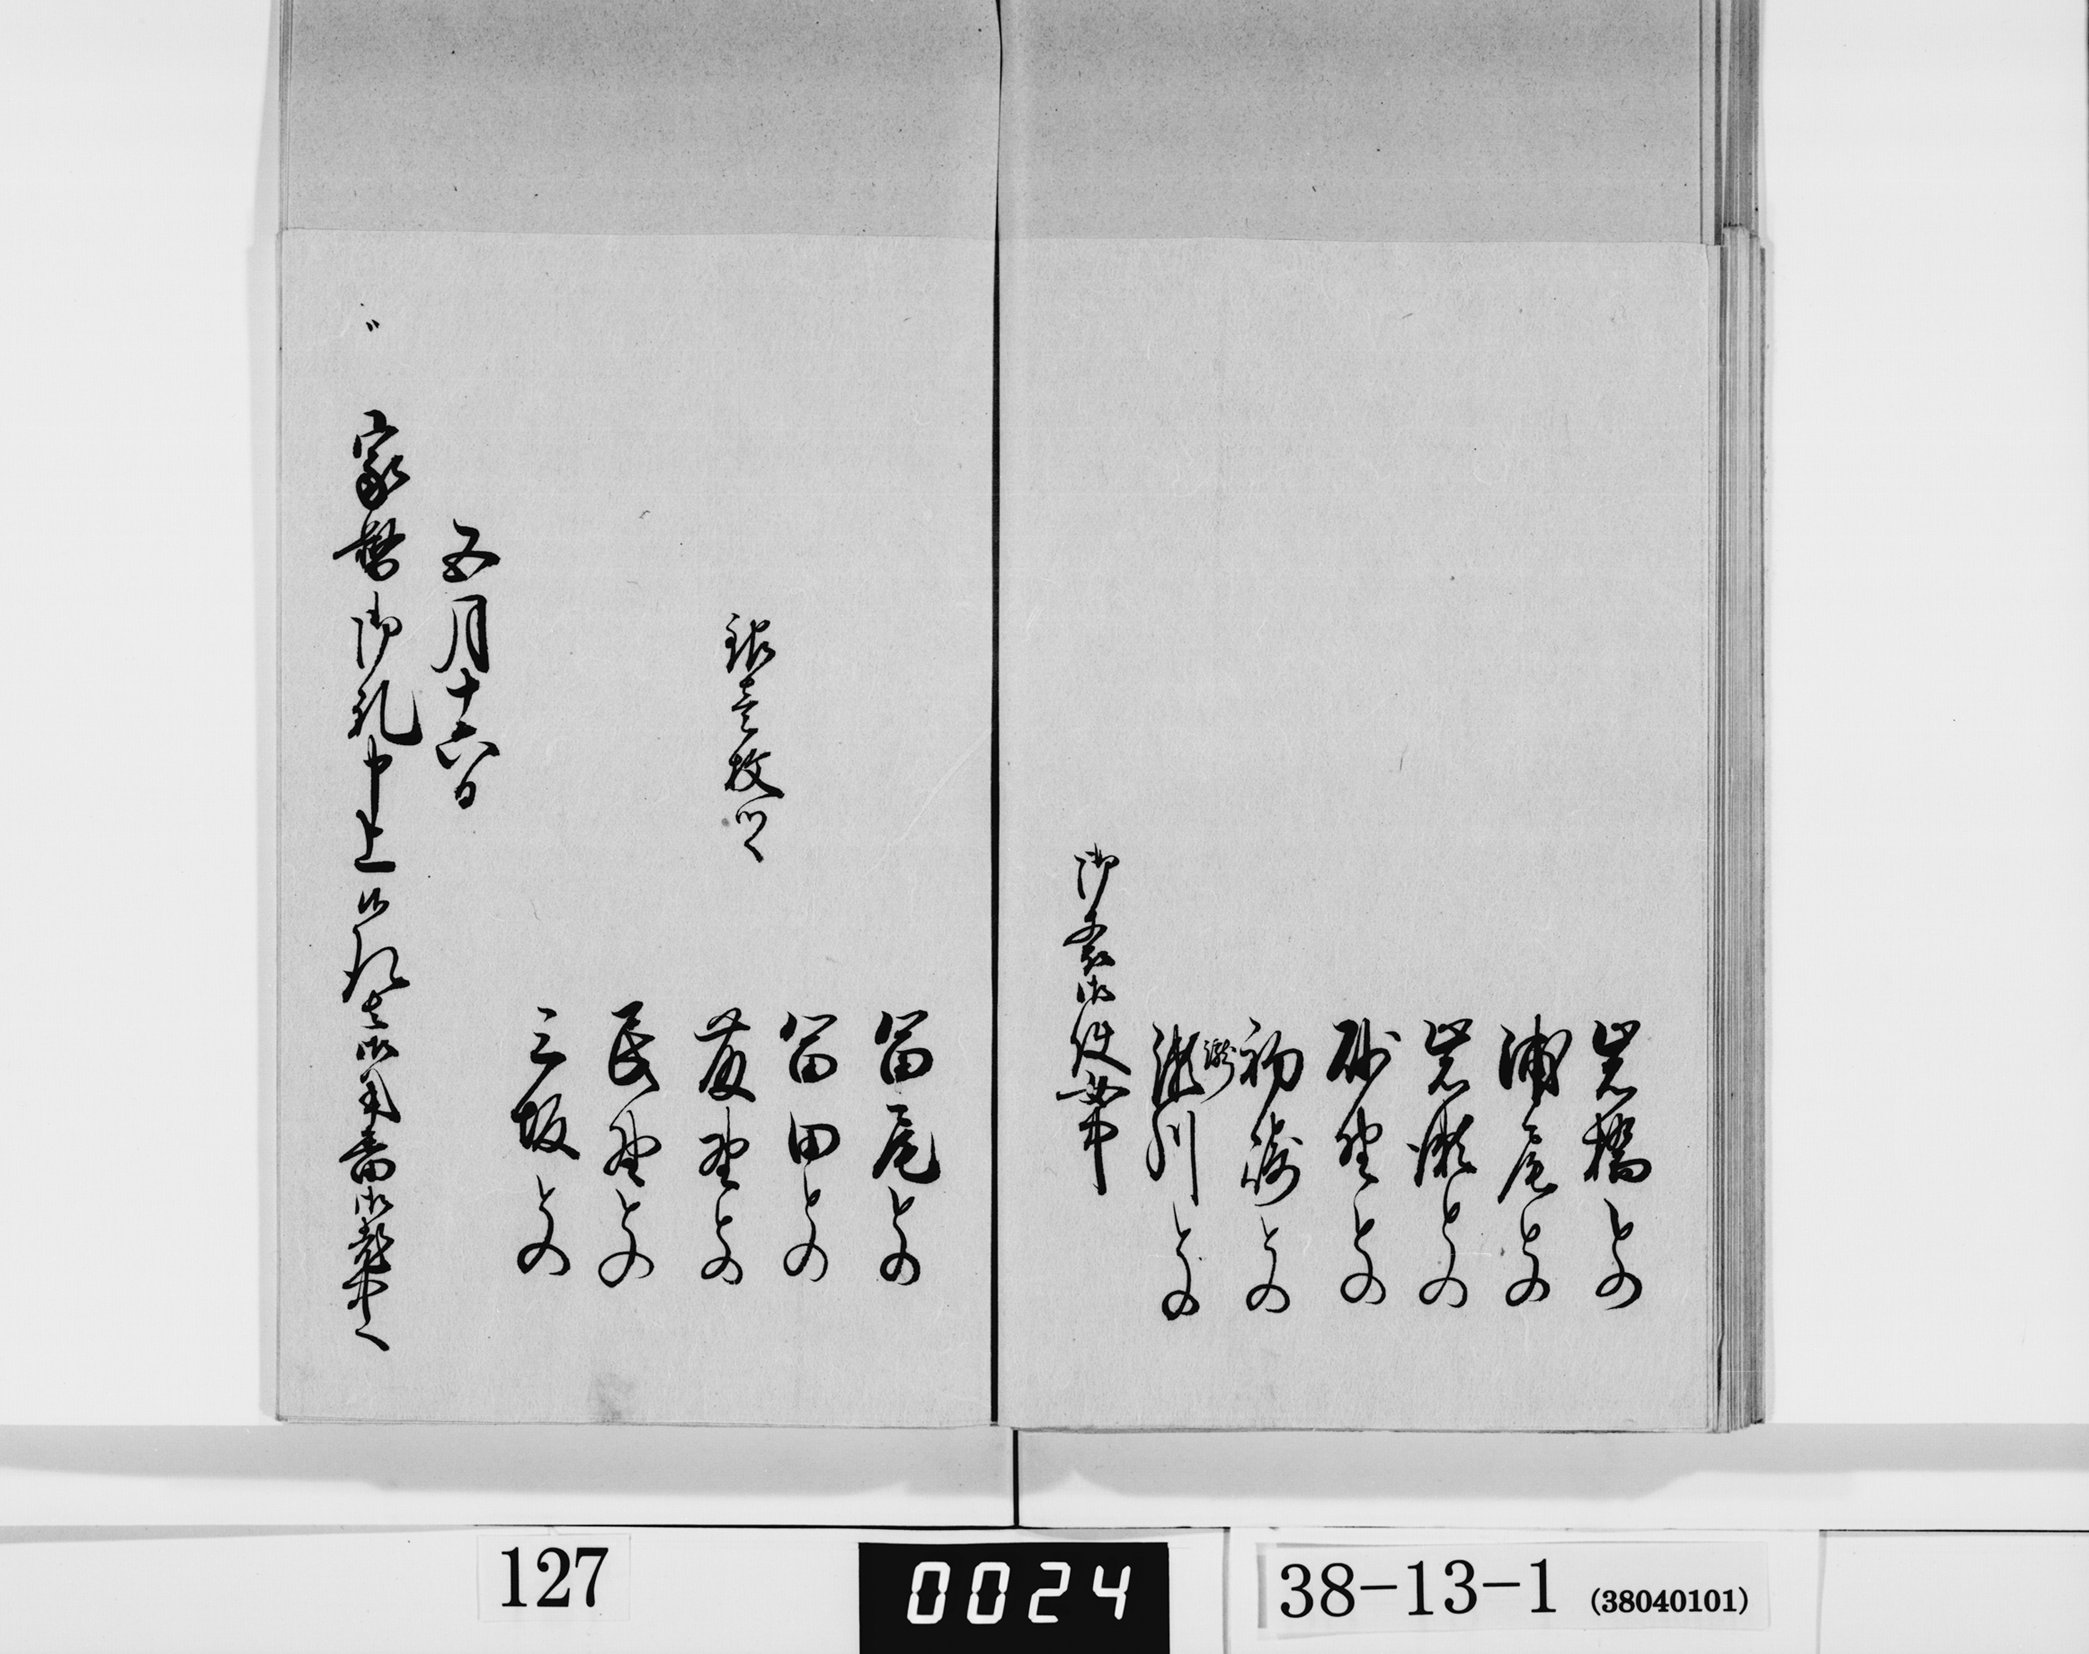 岩橋との
浦尾との
岩瀬との
砂野との
初崎との
瀧川との
瀧
御表御使女中
富尾との
富田との
銀壱枚ツヽ
藤野との
民野との
三坂との
五月十六日
家督御礼申上候
127
0024
38-13-1 (38040101)